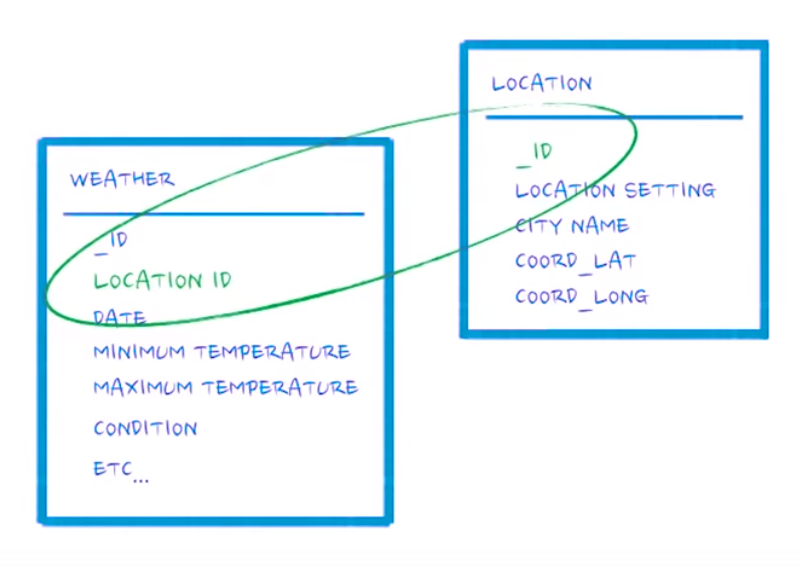 WEATHER
_ID
LOCATION ID
DATE
MINIMUM TEMPERATURE
MAXIMUM TEMPERATURE
CONDITION
ETC...
LOCATION
_ID
LOCATION SETTING
CITY NAME
COORD_LAT
COORD_LONG